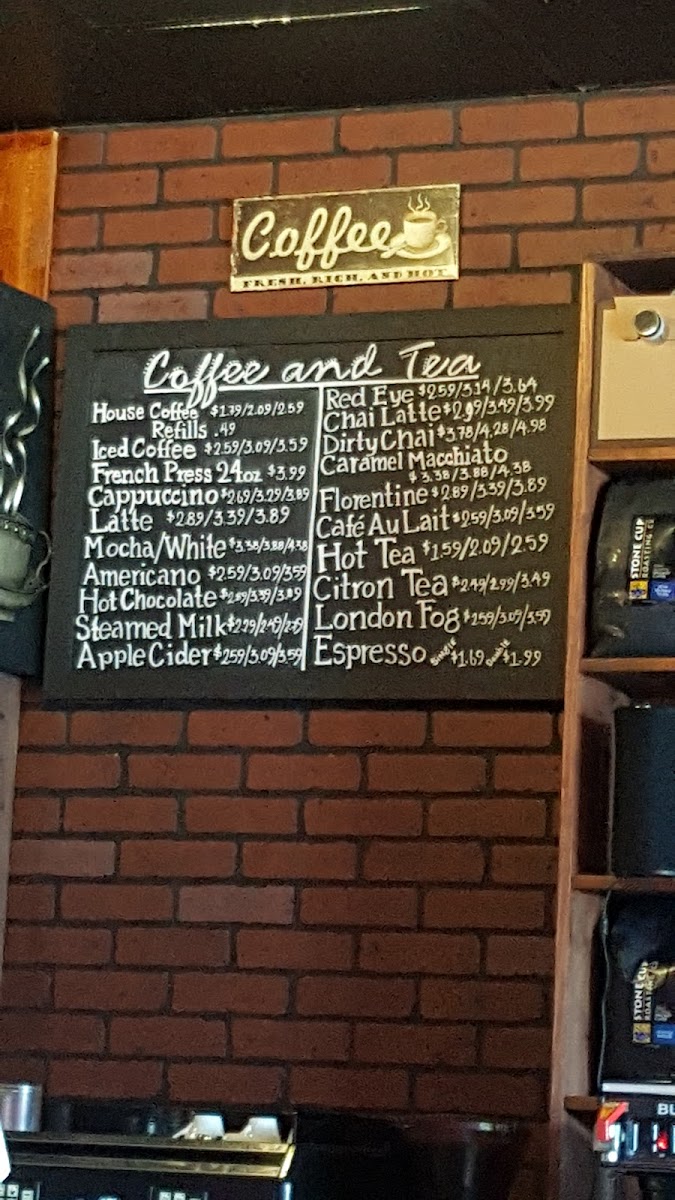 Coffee
FRESH, RICH, AND HOT
Coffee and Tea
House Coffee $1.79/2.09/2.59
Refills .49
Iced Coffee $2.59/3.09/3.59
French Press 24oz $3.99
Cappuccino $2.69/3.29/3.89
Latte $2.89/3.39/3.89
Mocha/White $3.38/3.88/4.38
Americano $2.59/3.09/3.59
Hot Chocolate $2.89/3.39/3.89
Steamed Milk
Apple Cider $2.59/3.09/3.59
Red Eye $2.59/3.14/3.64
Chai Latte $2.99/3.49/3.99
Dirty Chai $3.78/4.28/4.98
Caramel Macchiato
$3.38/3.88/4.38
Florentine $2.89/3.39/3.89
Café Au Lait $2.59/3.09/3.59
Hot Tea $1.59/2.09/2.59
Citron Tea $2.49/2.99/3.49
London Fog $2.59/3.09/3.59
Espresso single $1.69 double $1.99
STONE CUP
ROASTING CO
STONE CUP
ROASTING CO
BU